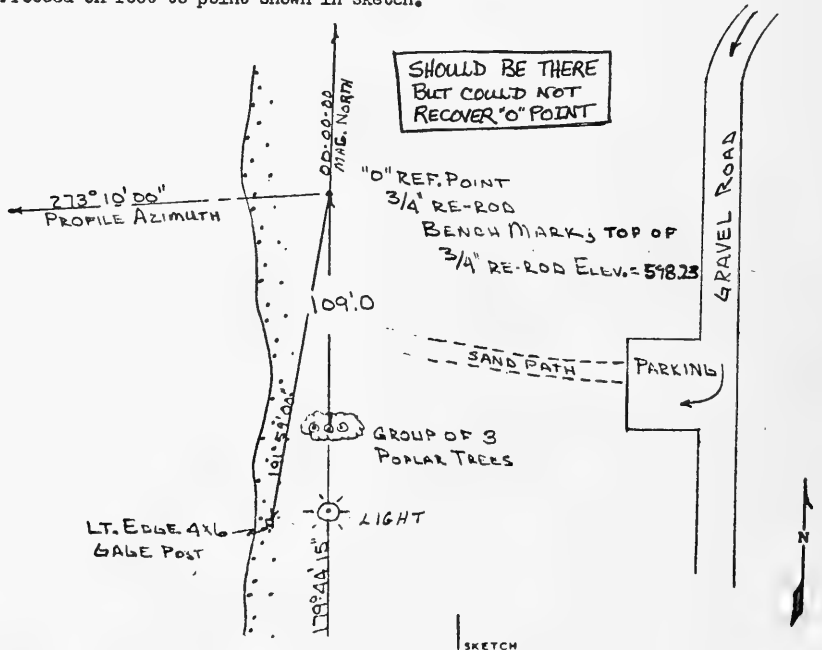 on foot to point shown in sketch.
SHOULD BE THERE
BUT COULD NOT
RECOVER "O" POINT
00-00-00
MAG. NORTH
GRAVEL ROAD
273° 10' 00"
PROFILE AZIMUTH
"O" REF. POINT
3/4" RE-ROD
BENCH MARK; TOP OF
3/4" RE-ROD ELEV. = 598.23
109'.0
SAND PATH
PARKING
GROUP OF 3
POPLAR TREES
LT. EDGE 4x6
GAGE POST
LIGHT
179° 44' 15"
N
SKETCH